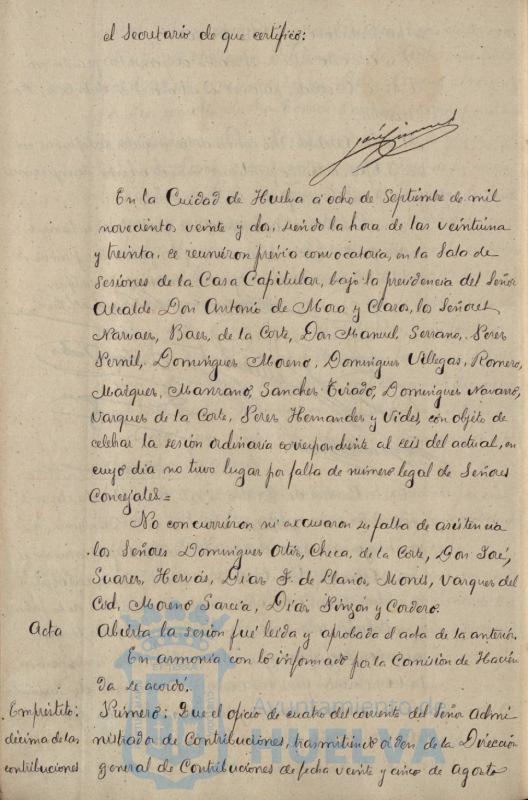 el Secretario de que certifico:
José Jimenez
En la Cuidad de Huelva a ocho de Septiembre de mil
novecientos veinte y dos, siendo la hora de las veintiuna
y treinta, se reunieron previa convocatoria, en la Sala de
sesiones de la Casa Capitular, bajo la presidencia del Señor
Alcalde Don Antonio de Mora y Claros, los Señores
Narvaes, Baes, de la Corte, Don Manuel, Serrano, Peres
Pernil, Domingues Moreno, Domingues Villegas, Romero,
Marques, Manzano, Sanches Tirado, Domingues Navarro,
Varques de la Corte, Peres Hernandes y Vides, con objeto de
celebrar la sesión ordinaria correspondiente al seis del actual, en
cuyo dia no tuvo lugar por falta de número legal de Señores
Concejales=
No concurrieron ni excusaron su falta de asistencia
los Señores Domingues Ortis, Checa, de la Corte, Don José,
Suares, Hervás, Dias F. de Llanos, Monis, Varques del
Cid, Moreno Garcia, Dias Pinzón y Cordero.
Acta Abierta la sesión fué leida y aprobada el acta de la anterior.
En armonia con lo informado por la Comisión de Hacien
da se acordó.
Empréstito: Primero: Que el oficio de cuatro del corriente del Señor Admi
décima de las nistrador de Contribuciones, trasmitiendo orden de la Dirección
contribuciones general de Contribuciones de fecha veinte y cinco de Agosto
Ayuntamiento de
HUELVA